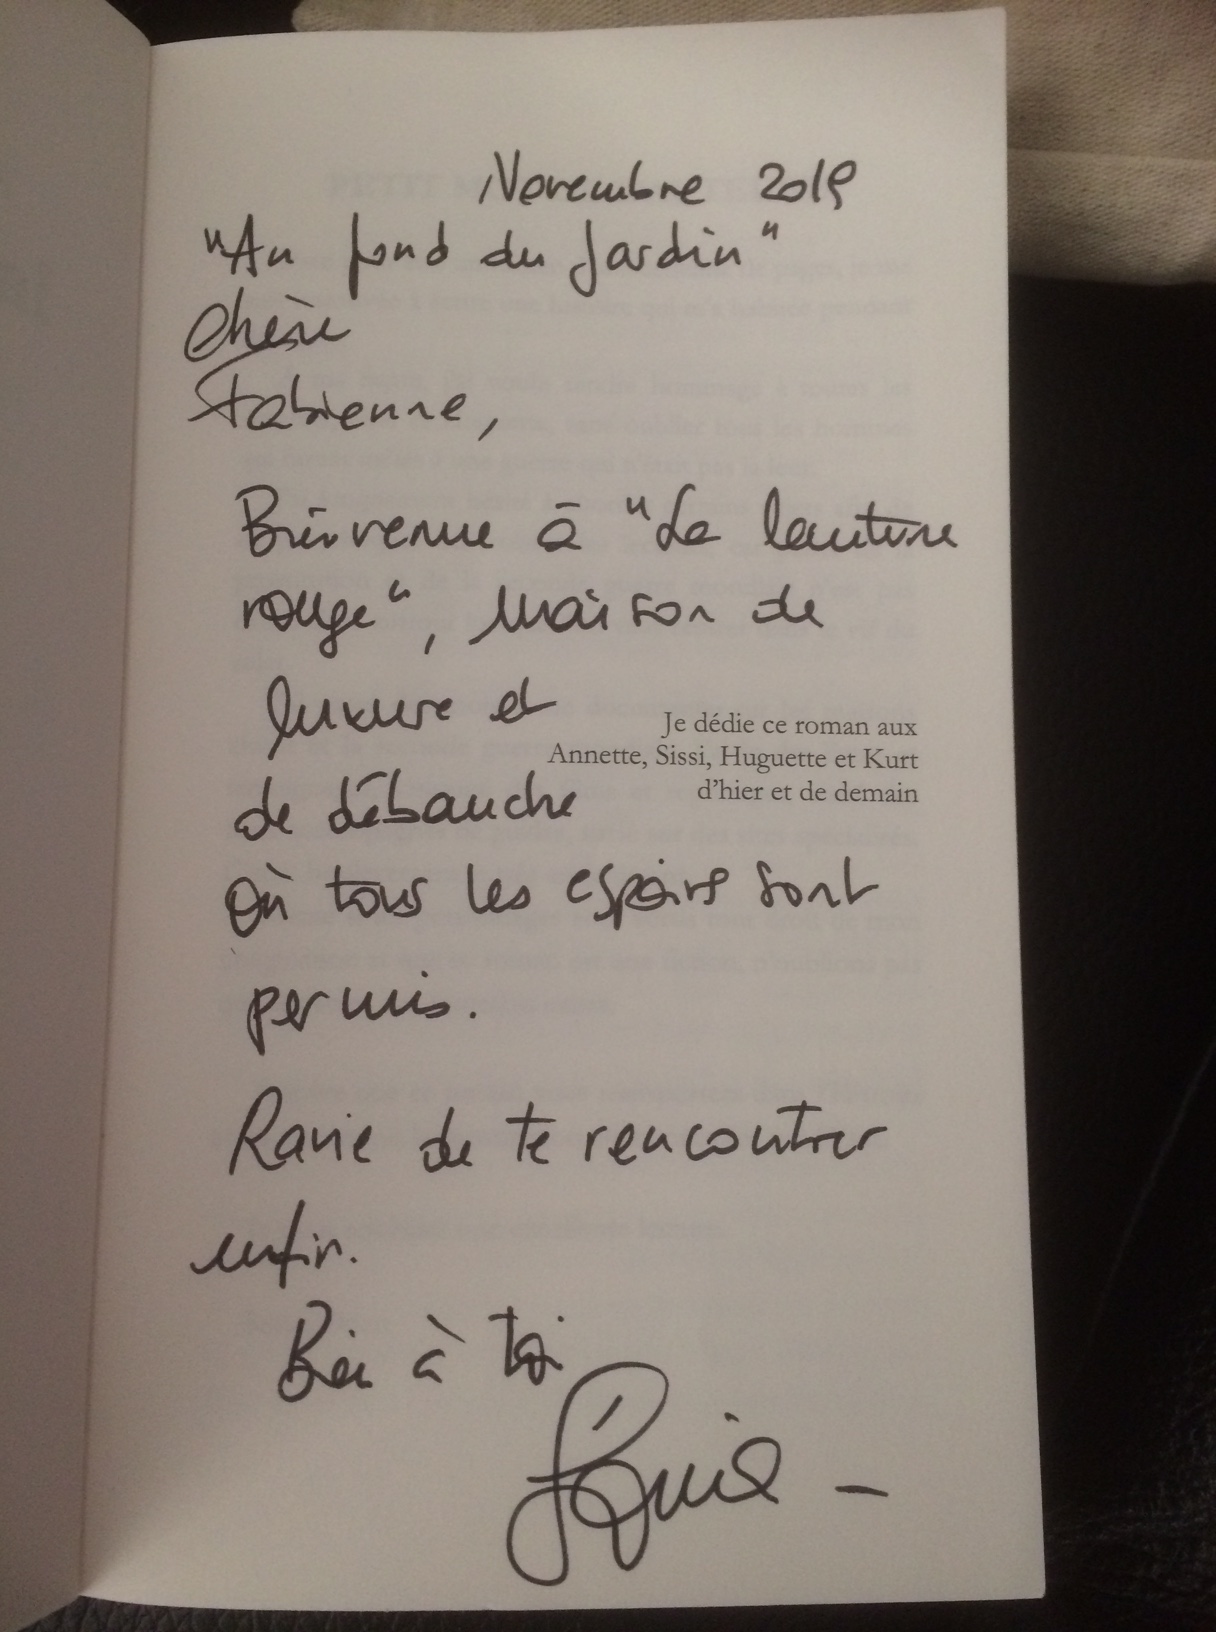 Novembre 2019
"Au fond du Jardin"
Chère
Fabienne,
Bienvenue à "La lanterne
rouge", maison de
luxure et
Je dédie ce roman aux
Annette, Sissi, Huguette et Kurt
d'hier et de demain
de débauche
où tous les espoirs sont
permis.
Ravie de te rencontrer
enfin.
Bien à toi